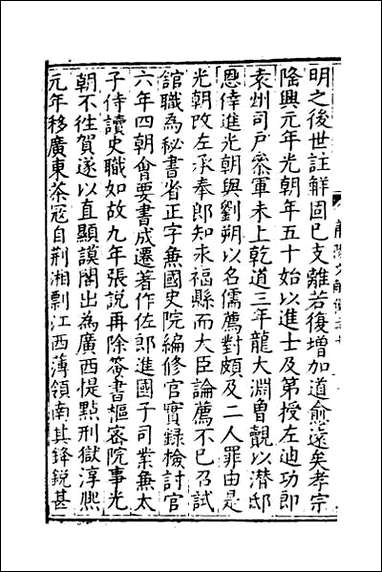 明之後世註解固已支離若復增加道愈遠矣孝宗
隆興元年光朝年五十始以進士及第授左迪功郎
袁州司戶叅軍未上乾道三年龍大淵曾覿以潛邸
恩倖進光朝與劉朔以名儒薦對頗及二人罪由是
光朝改左承奉郎知永福縣而大臣論薦不已召試
館職為秘書省正字兼國史院編修官實録檢討官
六年四朝會要書成遷著作佐郎進國子司業兼太
子侍讀史職如故九年張說再除簽書樞密院事光
朝不徃賀遂以直顯謨閣出為廣西提點刑獄淳熈
元年移廣東茶寇自荆湘剽江西薄領南其鋒銳甚